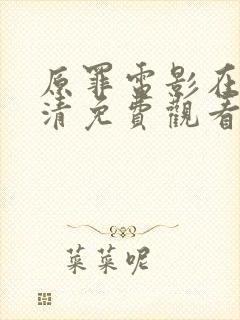 原罪雷影在
清免費觀看
菜菜呢